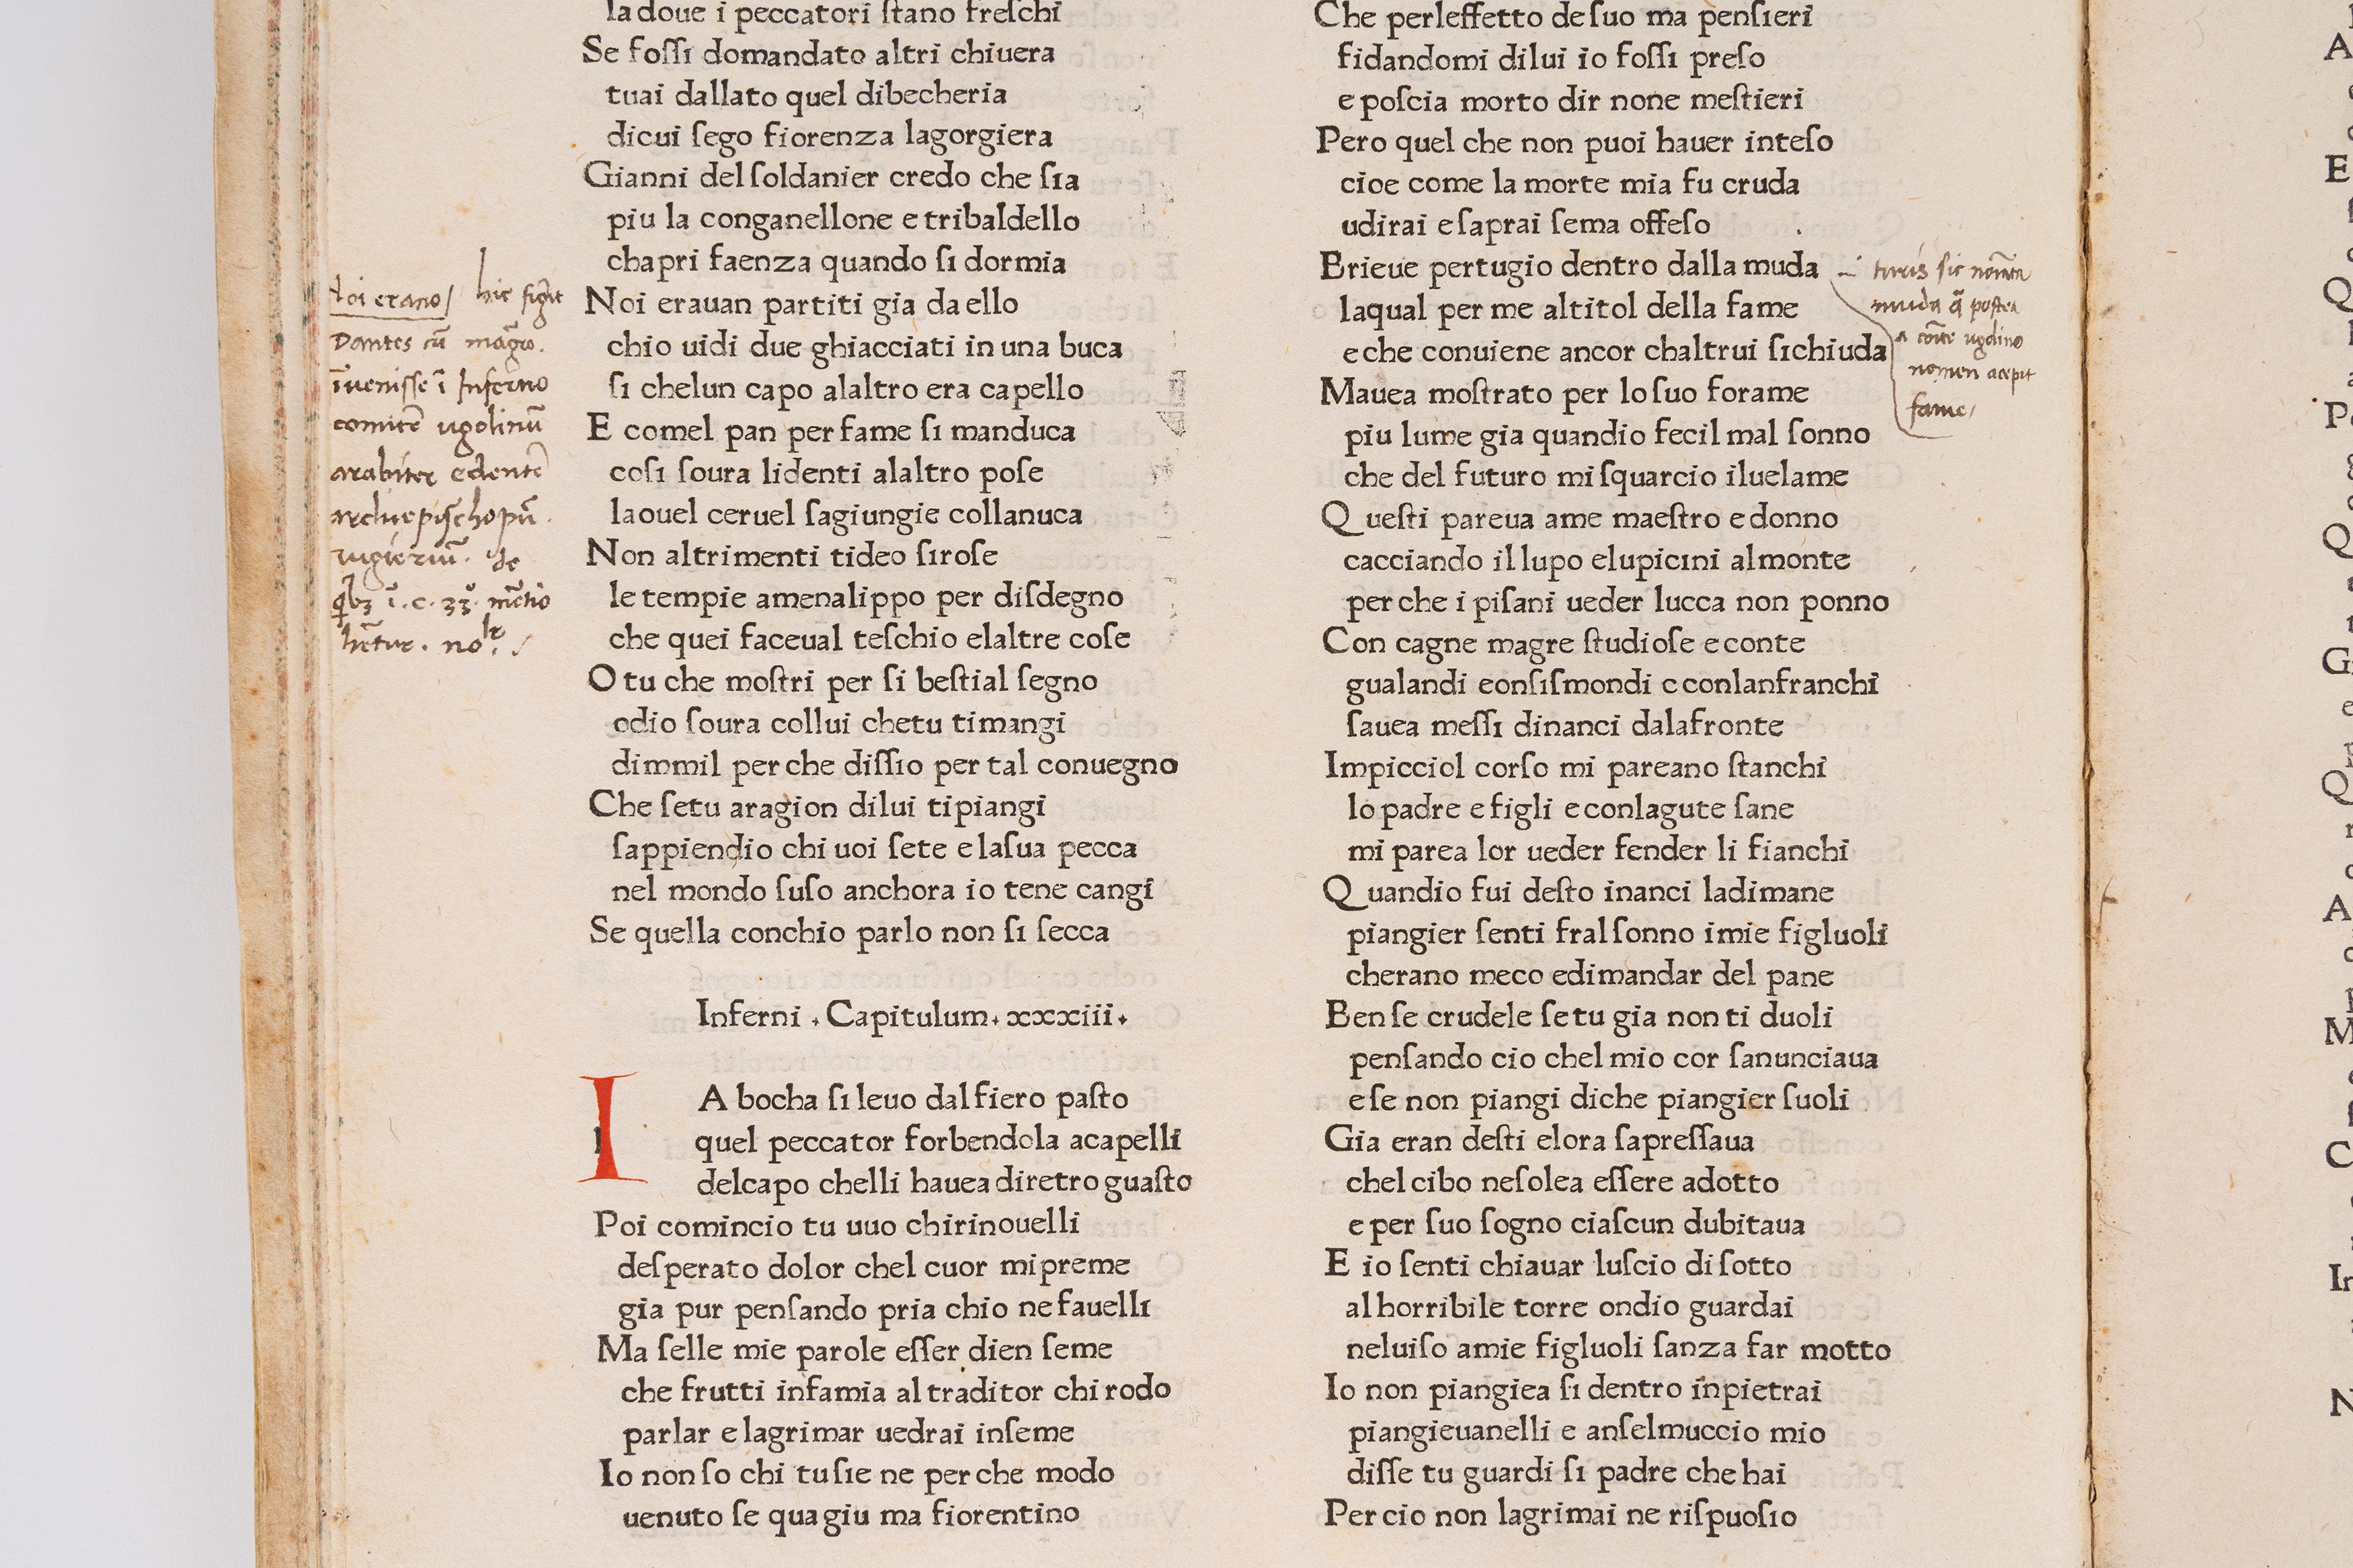 la doue i peccatori ſtano freſchi
Se foſſi domandato altri chiuera
tuai dallato quel dibecheria
dicui ſego fiorenza lagorgiera
Gianni del ſoldanier credo che ſia
piu la conganellone e tribaldello
chapri faenza quando ſi dormia
Noi erauan partiti gia da ello
chio uidi due ghiacciati in una buca
ſi chelun capo alaltro era capello
E comel pan per fame ſi manduca
coſi ſoura lidenti alaltro poſe
laouel ceruel ſagiungie collanuca
Non altrimenti tideo ſiroſe
le tempie amenalippo per diſdegno
che quei faceual teſchio elaltre coſe
O tu che moſtri per ſi beſtial ſegno
odio ſoura collui chetu timangi
dimmil per che diſſio per tal conuegno
Che ſetu aragion dilui tipiangi
ſappiendio chi uoi ſete e laſua pecca
nel mondo ſuſo anchora io tene cangi
Se quella conchio parlo non ſi ſecca
Inferni . Capitulum . xxxiii .
I
l
A bocha ſi leuo dal fiero paſto
quel peccator forbendola acapelli
delcapo chelli hauea diretro guaſto
Poi comincio tu uuo chirinouelli
deſperato dolor chel cuor mi preme
gia pur penſando pria chio ne fauelli
Ma ſelle mie parole eſſer dien ſeme
che frutti infamia al traditor chi rodo
parlar e lagrimar uedrai inſeme
Io non ſo chi tu ſie ne per che modo
uenuto ſe qua giu ma fiorentino
noi erano / hic fingit
Dantes cū magr̄o.
īuenisse ī Inferno
comitē ugolinū
arabiter edentē
archiepischopū.
rugieriū. de
qbꝫ ī. c. 33. mentio
hētur. no.
Che perleffetto de ſuo ma penſieri
fidandomi dilui io foſſi preſo
e poſcia morto dir none meſtieri
Pero quel che non puoi hauer inteſo
cioe come la morte mia fu cruda
udirai e ſaprai ſema offeſo
Brieue pertugio dentro dalla muda
laqual per me altitol della fame
e che conuiene ancor chaltrui ſichiuda
Mauea moſtrato per lo ſuo forame
piu lume gia quandio fecil mal ſonno
che del futuro mi ſquarcio iluelame
Queſti pareua ame maeſtro e donno
cacciando il lupo elupicini al monte
per che i piſani ueder lucca non ponno
Con cagne magre ſtudioſe e conte
gualandi eonſiſmondi c conlanfranchi
ſauea meſſi dinanci dalafronte
Impicciol corſo mi pareano ſtanchi
lo padre e figli e conlagute ſane
mi parea lor ueder fender li fianchi
Quandio fui deſto inanci ladimane
piangier ſenti fral ſonno imie figluoli
cherano meco edimandar del pane
Ben ſe crudele ſe tu gia non ti duoli
penſando cio chel mio cor ſanunciaua
e ſe non piangi diche piangier ſuoli
Gia eran deſti elora ſapreſſaua
chel cibo neſolea eſſere adotto
e per ſuo ſogno ciaſcun dubitaua
E io ſenti chiauar luſcio di ſotto
al horribile torre ondio guardai
neluiſo amie figluoli ſanza far motto
Io non piangiea ſi dentro inpietrai
piangieuanelli e anſelmuccio mio
diſſe tu guardi ſi padre che hai
Per cio non lagrimai ne riſpuoſio
turis sic nomīata
muda q̄ postea
a comite ugolino
nomen acepit
fame/